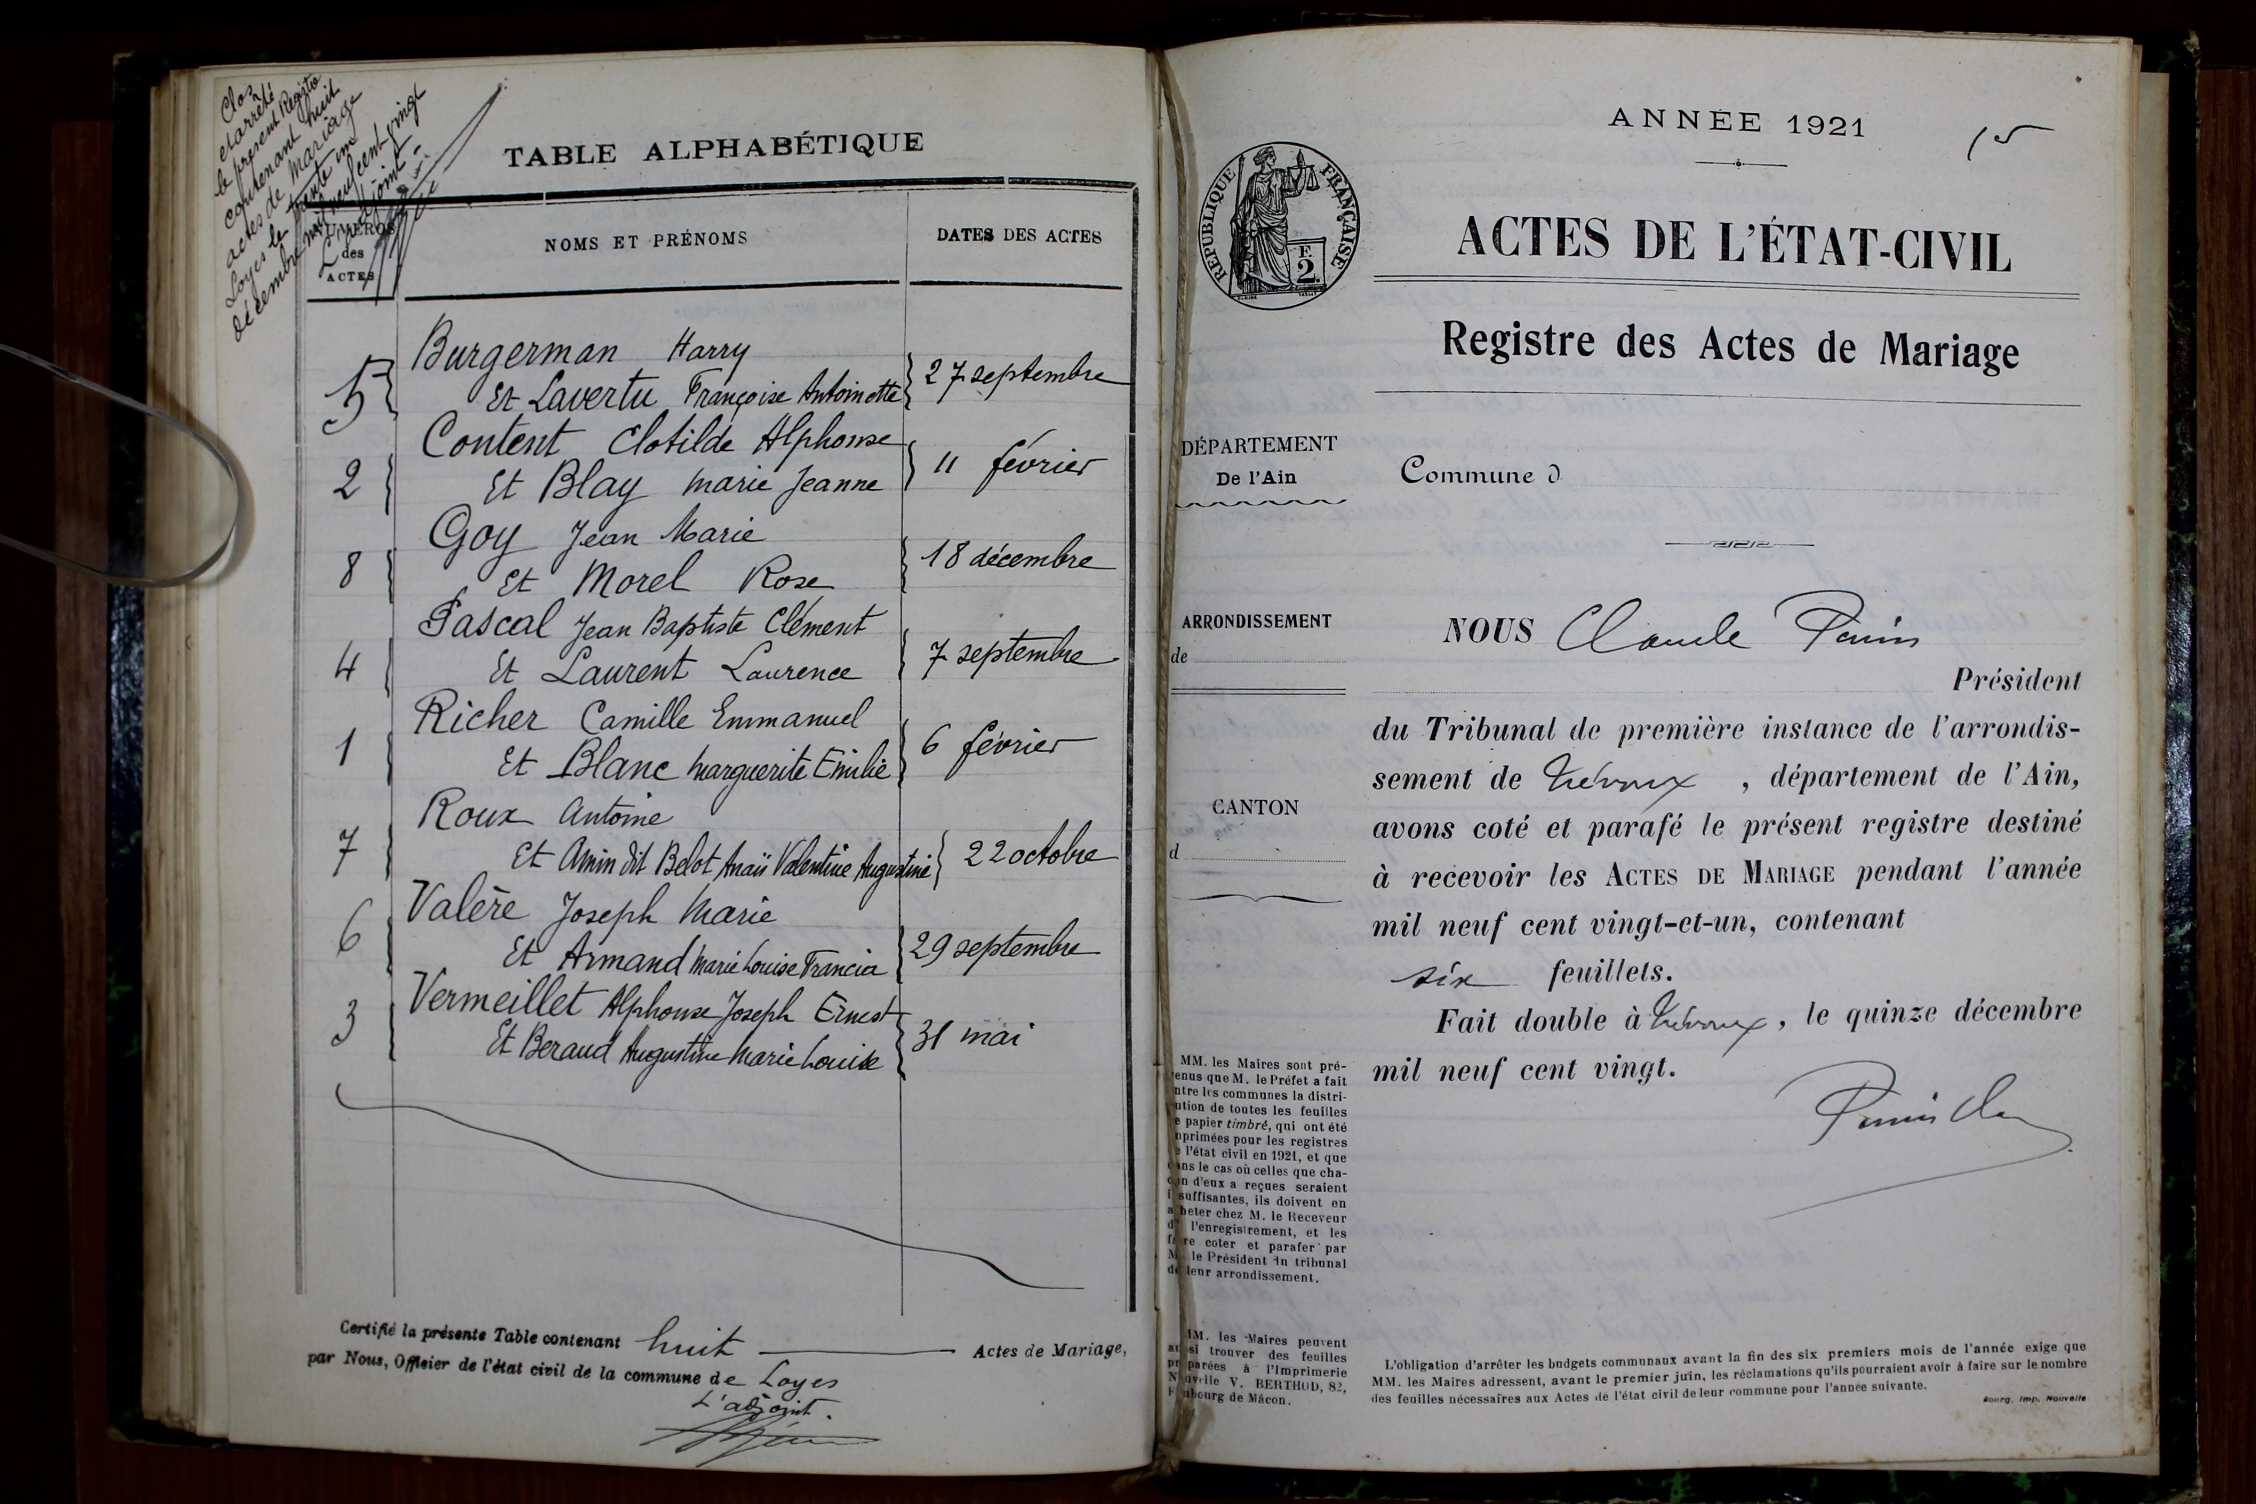 Clos
et arrêté
le présent Registre
contenant huit
actes de mariage
Loyes le trente un
décembre mil neuf cent vingt
L'adjoint
TABLE ALPHABÉTIQUE
NUMÉROS
des
ACTES
NOMS ET PRÉNOMS
DATES DES ACTES
Burgerman Harry
5 Et Lavertu Françoise Antoinette 27 septembre
Content Clotilde Alphonse
2 Et Blay Marie Jeanne 11 février
Goy Jean Marie
8 Et Morel Rose 18 décembre
Pascal Jean Baptiste Clément
4 Et Laurent Laurence 7 septembre
Richer Camille Emmanuel
1 Et Blanc Marguerite Emilie 6 février
Roux Antoine
7 Et Amin dit Belot Anaïs Valentine Augustine 22 octobre
Valère Joseph Marie
6 Et Armand Marie Louise Francia 29 septembre
Vermeillet Alphonse Joseph Ernest
3 Et Beraud Augustine Marie Louise 31 mai
Certifié la présente Table contenant huit Actes de Mariage,
par Nous, Officier de l'état civil de la commune de Loyes
L'adjoint.
ANNÉE 1921
15
RÉPUBLIQUE FRANÇAISE
F.
2
ACTES DE L'ÉTAT-CIVIL
Registre des Actes de Mariage
DÉPARTEMENT
De l'Ain
Commune d
ARRONDISSEMENT
de
CANTON
d
NOUS Claude Perrin
Président
du Tribunal de première instance de l'arrondis-
sement de Trévoux, département de l'Ain,
avons coté et parafé le présent registre destiné
à recevoir les ACTES DE MARIAGE pendant l'année
mil neuf cent vingt-et-un, contenant
six feuillets.
Fait double à Trévoux, le quinze décembre
mil neuf cent vingt.
MM. les Maires sont pré-
venus que M. le Préfet a fait
entre les communes la distri-
bution de toutes les feuilles
de papier timbré, qui ont été
imprimées pour les registres
de l'état civil en 1921, et que
dans le cas où celles que cha-
cun d'eux a reçues seraient
insuffisantes, ils doivent en
acheter chez M. le Receveur
de l'enregistrement, et les
faire coter et parafer par
M. le Président du tribunal
de leur arrondissement.
MM. les Maires peuvent
aussi trouver des feuilles
préparées à l'Imprimerie
Nouvelle V. BERTHOD, 82,
Faubourg de Mâcon.
L'obligation d'arrêter les budgets communaux avant la fin des six premiers mois de l'année exige que
MM. les Maires adressent, avant le premier juin, les réclamations qu'ils pourraient avoir à faire sur le nombre
des feuilles nécessaires aux Actes de l'état civil de leur commune pour l'année suivante.
Bourg, Imp. Nouvelle